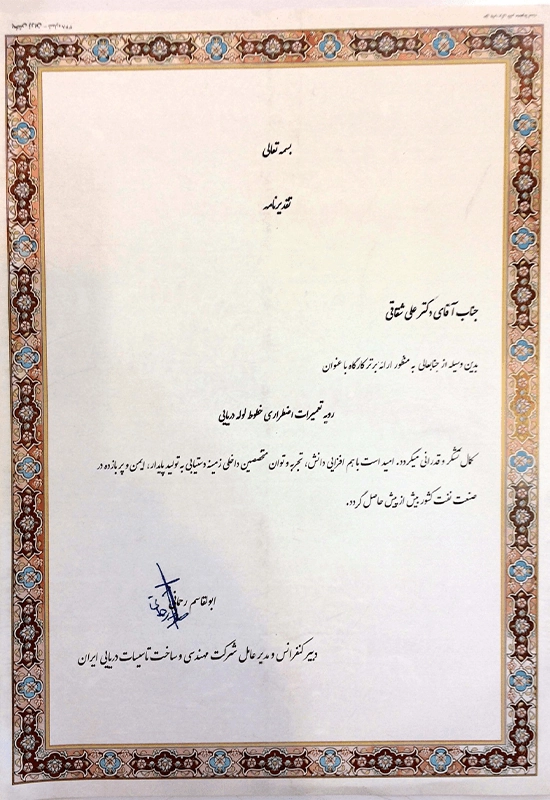 بسمه تعالی
تقدیرنامه
جناب آقای دکتر علی ثقفی
بدین وسیله از جنابعالی به منظور ارائه برتر کارگاه با عنوان
رویه تعمیرات اضطراری خطوط لوله دریایی
کمال تشکر و قدردانی میگردد. امید است با هم افزایی دانش، تجربه و توان متخصصین داخلی زمینه دستیابی به تولید پایدار، ایمن و پر بازده در
صنعت نفت کشور بیش از پیش حاصل گردد.
ابوالقاسم رحمانی
دبیر کنفرانس و مدیر عامل شرکت مهندسی و ساخت تاسیسات دریایی ایران